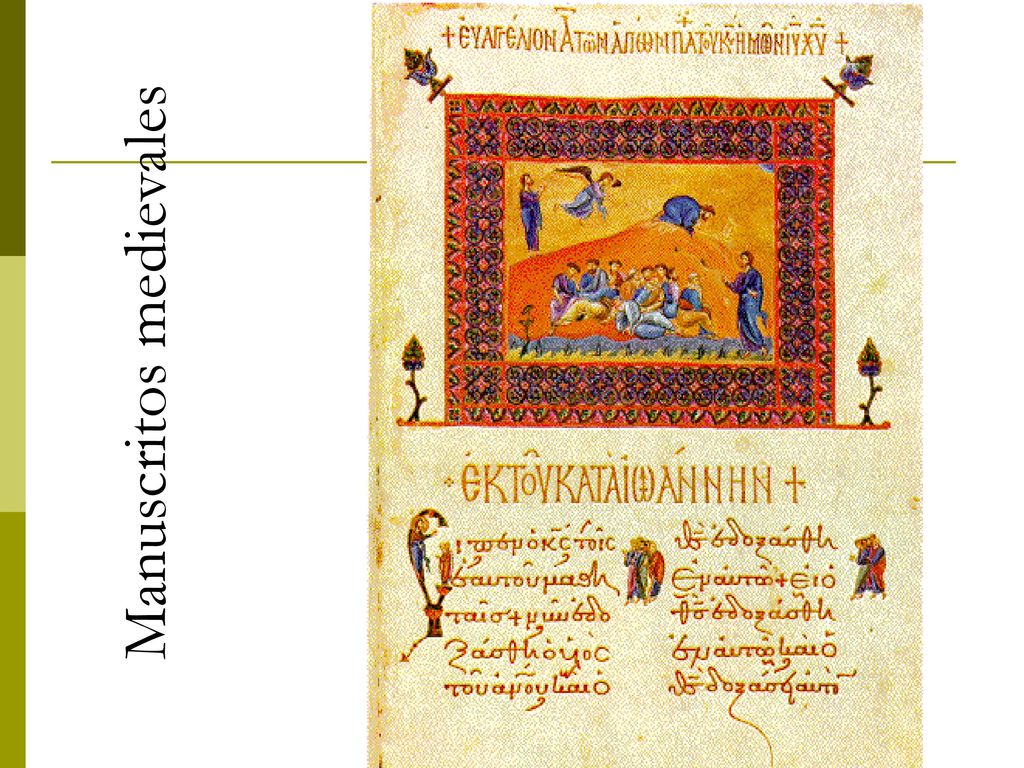 Manuscritos medievales
+ ἘΥΑΓΓΈΛΙΟΝ Α ΤῶΝ ἉΓΊΩΝ ΤΟΥ ΚΥ ἩΜῶΝ ΙΥ ΧΥ +
ἘΚ ΤΟῦ ΚΑΤᾺ ἸΩΆΝΝΗΝ +
ὁ κς τοῖς
ἑαυτοῦ μαθη
ταῖς + νῦν ἐδο
ξάσθη ὁ υἱὸς
τοῦ ἀνου καὶ ὁ
θς ἐδοξάσθη
ἐν αὐτῶ + εἰ ὁ
θς ἐδοξάσθη
ἐν αὐτῶ καὶ ὁ
θς δοξάσει